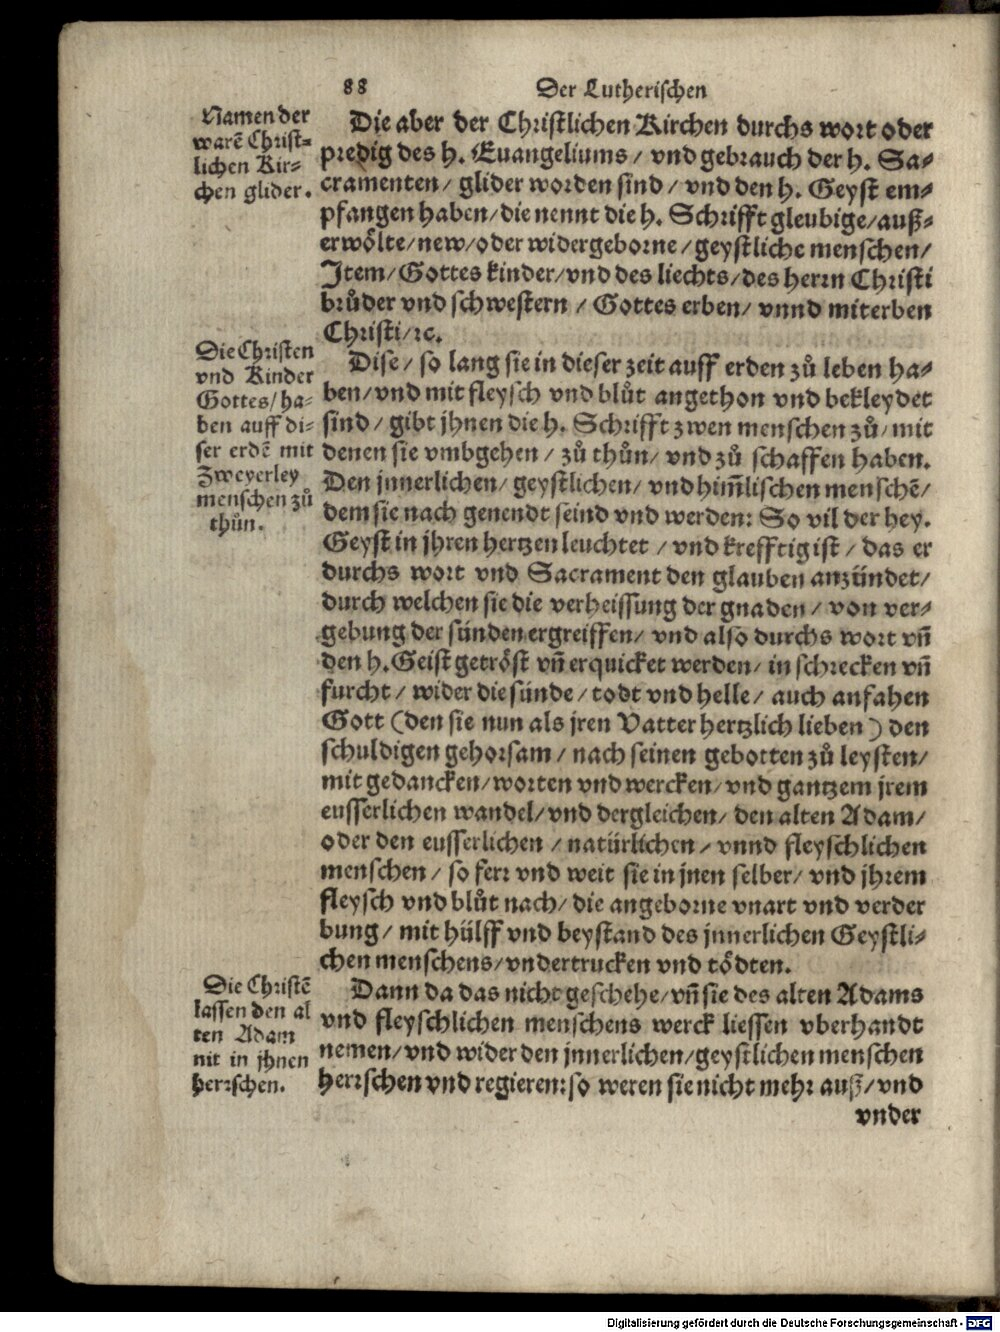 88 Der Lutherischen
Namen der
warẽ Christ=
lichen Kir=
chen glider.
Die aber der Christlichen Kirchen durchs wort oder
predig des h. Euangeliums / vnd gebrauch der h. Sa=
cramenten / glider worden sind / vnd den h. Geyst em=
pfangen haben / die nennt die h. Schrifft gleubige / auß=
erwölte / new / oder widergeborne / geystliche menschen /
Item / Gottes kinder / vnd des liechts / des herrn Christi
brůder vnd schwestern / Gottes erben / vnnd miterben
Christi / ꝛc.
Die Christen
vnd Kinder
Gottes / ha=
ben auff di=
ser erdẽ mit
Zweyerley
menschen zů
thůn.
Dise / so lang sie in dieser zeit auff erden zů leben ha=
ben / vnd mit fleysch vnd blůt angethon vnd bekleydet
sind / gibt jhnen die h. Schrifft zwen menschen zů / mit
denen sie vmbgehen / zů thůn / vnd zů schaffen haben.
Den jnnerlichen / geystlichen / vnd him̃lischen menschẽ /
dem sie nach genendt seind vnd werden: So vil der hey.
Geyst in jhren hertzen leuchtet / vnd krefftig ist / das er
durchs wort vnd Sacrament den glauben anzündet /
durch welchen sie die verheissung der gnaden / von ver=
gebung der sünden ergreiffen / vnd also durchs wort vñ
den h. Geist getröst vñ erquicket werden / in schrecken vñ
furcht / wider die sünde / todt vnd helle / auch anfahen
Gott (den sie nun als jren Vatter hertzlich lieben) den
schuldigen gehorsam / nach seinen gebotten zů leysten /
mit gedancken / worten vnd wercken / vnd gantzem jrem
eusserlichen wandel / vnd dergleichen / den alten Adam /
oder den eusserlichen / natürlichen / vnnd fleyschlichen
menschen / so ferr vnd weit sie in jnen selber / vnd jhrem
fleysch vnd blůt nach / die angeborne vnart vnd verder
bung / mit hülff vnd beystand des jnnerlichen Geystli=
chen menschens / vndertrucken vnd tödten.
Die Christẽ
lassen den al
ten Adam
nit in jhnen
herrschen.
Dann da das nicht geschehe / vñ sie des alten Adams
vnd fleyschlichen menschens werck liessen vberhandt
nemen / vnd wider den jnnerlichen / geystlichen menschen
herrschen vnd regieren: so weren sie nicht mehr auß / vnd
vnder
Digitalisierung gefördert durch die Deutsche Forschungsgemeinschaft - DFG